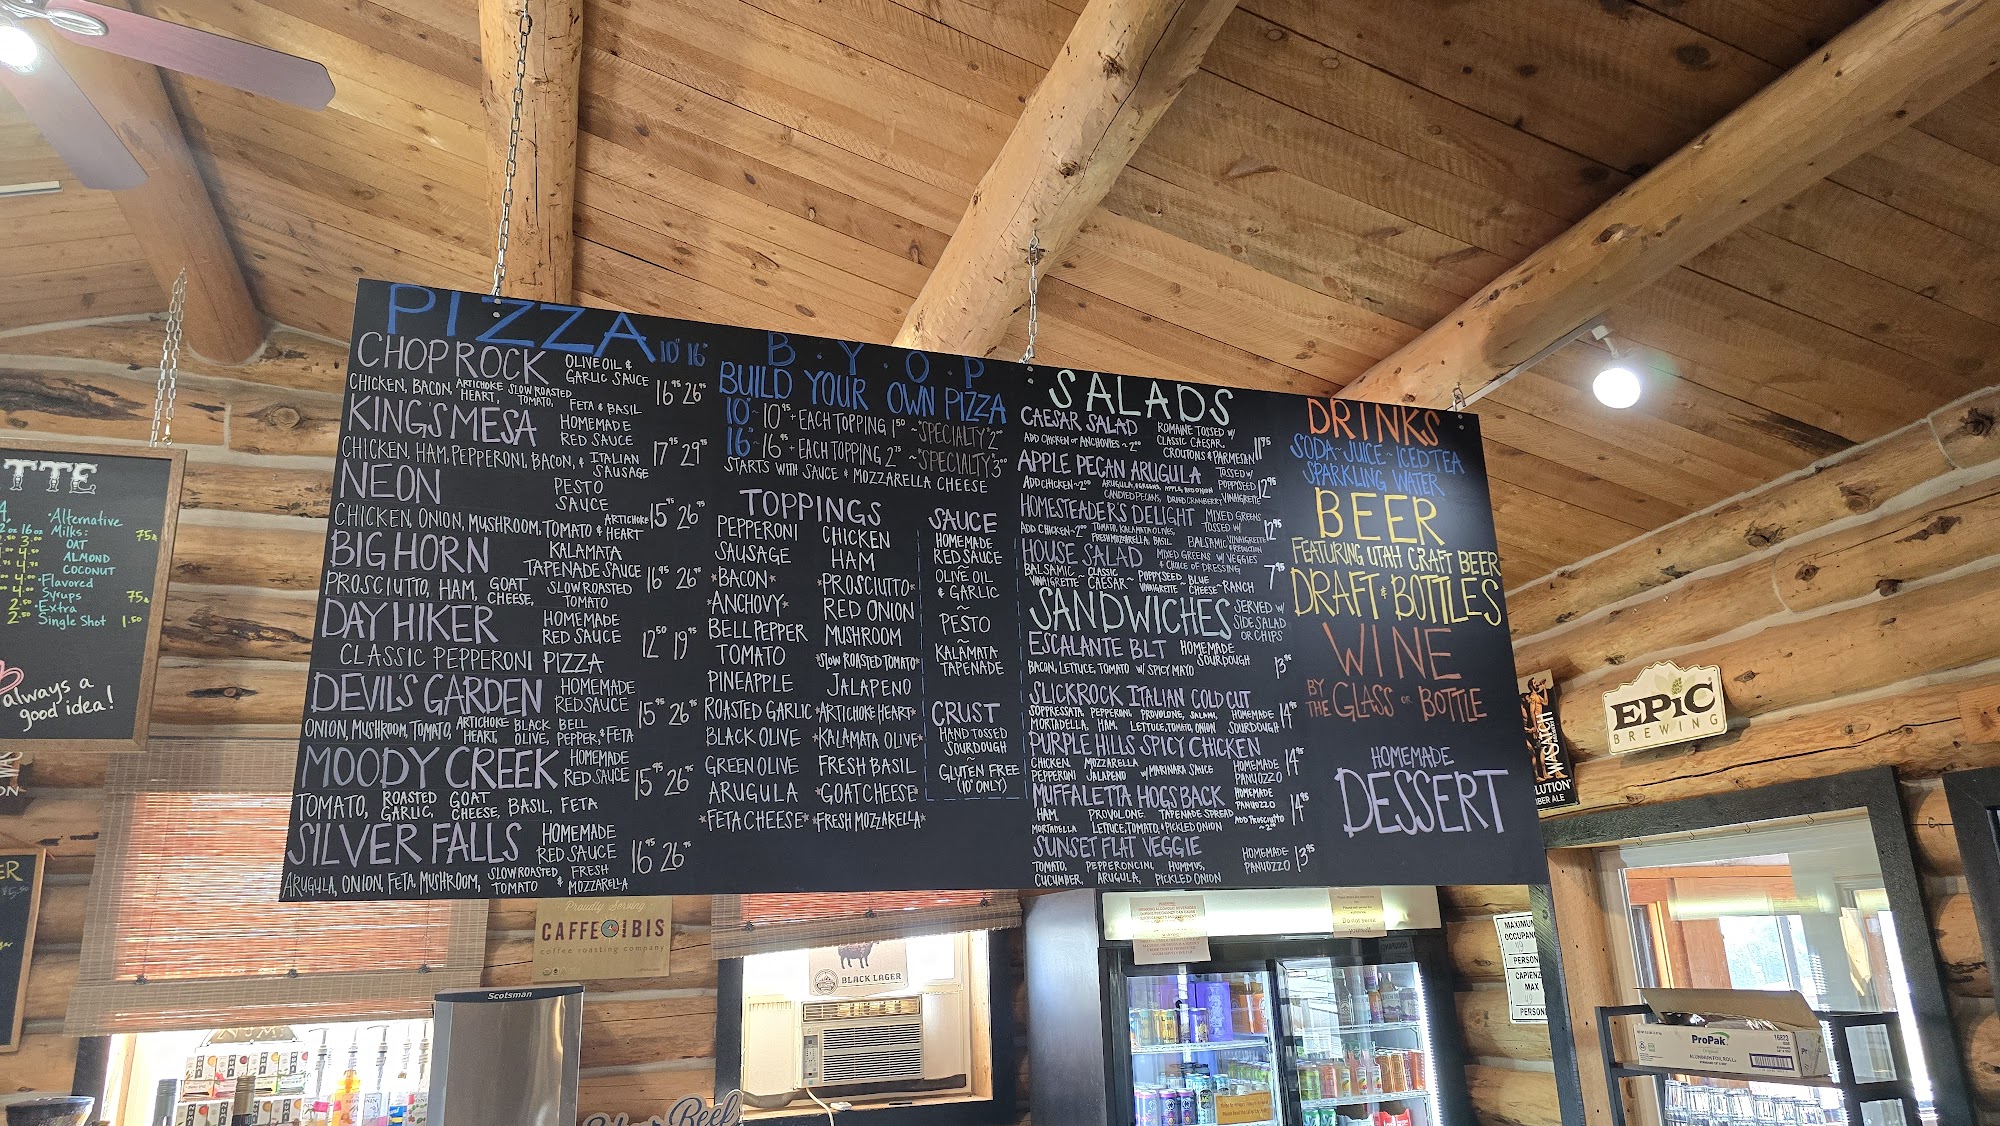 PIZZA 10" 16"
CHOP ROCK OLIVE OIL & GARLIC SAUCE 16⁹⁵ 26⁹⁵
CHICKEN, BACON, ARTICHOKE HEART, SLOW ROASTED TOMATO, FETA & BASIL
KING'S MESA HOMEMADE RED SAUCE 17⁹⁵ 29⁹⁵
CHICKEN, HAM, PEPPERONI, BACON, & ITALIAN SAUSAGE
NEON PESTO SAUCE 15⁹⁵ 26⁹⁵
CHICKEN, ONION, MUSHROOM, TOMATO & ARTICHOKE HEART
BIG HORN KALAMATA TAPENADE SAUCE 16⁹⁵ 26⁹⁵
PROSCIUTTO, HAM, GOAT CHEESE, SLOW ROASTED TOMATO
DAY HIKER HOMEMADE RED SAUCE 12⁵⁰ 19⁹⁵
CLASSIC PEPPERONI PIZZA
DEVIL'S GARDEN HOMEMADE RED SAUCE 15⁹⁵ 26⁹⁵
ONION, MUSHROOM, TOMATO, ARTICHOKE HEART, BLACK OLIVE, BELL PEPPER, & FETA
MOODY CREEK HOMEMADE RED SAUCE 15⁹⁵ 26⁹⁵
TOMATO, ROASTED GARLIC, GOAT CHEESE, BASIL, FETA
SILVER FALLS HOMEMADE RED SAUCE 16⁹⁵ 26⁹⁵
ARUGULA, ONION, FETA, MUSHROOM, SLOW ROASTED TOMATO & FRESH MOZZARELLA
B·Y·O·P
BUILD YOUR OWN PIZZA
10"~10⁹⁵ + EACH TOPPING 1⁵⁰ ~ "SPECIALTY" 2⁰⁰
16"~16⁹⁵ + EACH TOPPING 2⁷⁵ ~ "SPECIALTY" 3⁰⁰
STARTS WITH SAUCE & MOZZARELLA CHEESE
TOPPINGS
PEPPERONI CHICKEN
SAUSAGE HAM
*BACON* *PROSCIUTTO*
*ANCHOVY* RED ONION
BELL PEPPER MUSHROOM
TOMATO *SLOW ROASTED TOMATO*
PINEAPPLE JALAPENO
ROASTED GARLIC *ARTICHOKE HEART*
BLACK OLIVE *KALAMATA OLIVE*
GREEN OLIVE FRESH BASIL
ARUGULA *GOAT CHEESE*
*FETA CHEESE* *FRESH MOZZARELLA*
SAUCE
HOMEMADE
RED SAUCE
~
OLIVE OIL
& GARLIC
~
PESTO
~
KALAMATA
TAPENADE
CRUST
HAND TOSSED
SOURDOUGH
~
GLUTEN FREE
(10" ONLY)
SALADS
CAESAR SALAD ROMAINE TOSSED W/ CLASSIC CAESAR, CROUTONS & PARMESAN 11⁹⁵
ADD CHICKEN or ANCHOVIES ~ 2⁰⁰
APPLE PECAN ARUGULA TOSSED W/ POPPYSEED VINAIGRETTE 12⁹⁵
ADD CHICKEN ~ 2⁰⁰ ARUGULA, GREENS, APPLE, RED ONION CANDIED PECANS, DRIED CRANBERRY
HOMESTEADERS DELIGHT MIXED GREENS TOSSED W/ BALSAMIC VINAIGRETTE REDUCTION 12⁹⁵
ADD CHICKEN ~ 2⁰⁰ TOMATO, KALAMATA OLIVES, FRESH MOZZARELLA, BASIL
HOUSE SALAD MIXED GREENS W/ VEGGIES & CHOICE OF DRESSING 7⁹⁵
BALSAMIC VINAIGRETTE ~ CLASSIC CAESAR ~ POPPYSEED VINAIGRETTE ~ BLUE CHEESE ~ RANCH
SANDWICHES SERVED W/ SIDE SALAD OR CHIPS
ESCALANTE BLT HOMEMADE SOURDOUGH 13⁹⁵
BACON, LETTUCE, TOMATO W/ SPICY MAYO
SLICKROCK ITALIAN COLD CUT
SOPPRESSATA, PEPPERONI, PROVOLONE, SALAMI, HOMEMADE 14⁹⁵
MORTADELLA, HAM, LETTUCE, TOMATO, ONION SOURDOUGH
PURPLE HILLS SPICY CHICKEN
CHICKEN MOZZARELLA HOMEMADE 14⁹⁵
PEPPERONI JALAPENO W/ MARINARA SAUCE PANUOZZO
MUFFALETTA HOGSBACK HOMEMADE PANUOZZO 14⁹⁵
HAM PROVOLONE TAPENADE SPREAD ADD PROSCIUTTO ~ 2⁰⁰
MORTADELLA LETTUCE, TOMATO, & PICKLED ONION
SUNSET FLAT VEGGIE HOMEMADE PANUOZZO 13⁹⁵
TOMATO, PEPPERONCINI, HUMMUS,
CUCUMBER, ARUGULA, PICKLED ONION
DRINKS
SODA ~ JUICE ~ ICED TEA
SPARKLING WATER
BEER
FEATURING UTAH CRAFT BEER
DRAFT & BOTTLES
WINE
BY THE GLASS OR BOTTLE
HOMEMADE
DESSERT
TTE
·Alternative
Milks: 75¢
OAT
ALMOND
COCONUT
·Flavored
Syrups 75¢
·Extra
Single Shot 1.50
always a
good idea!
Proudly Serving
CAFFE IBIS
coffee roasting company
Scotsman
BLACK LAGER
NUMI
Beef
WASATCH
EPIC
BREWING
MAXIMUM
OCCUPANCY
49
PERSON
MAX
49
PERSON
ProPak